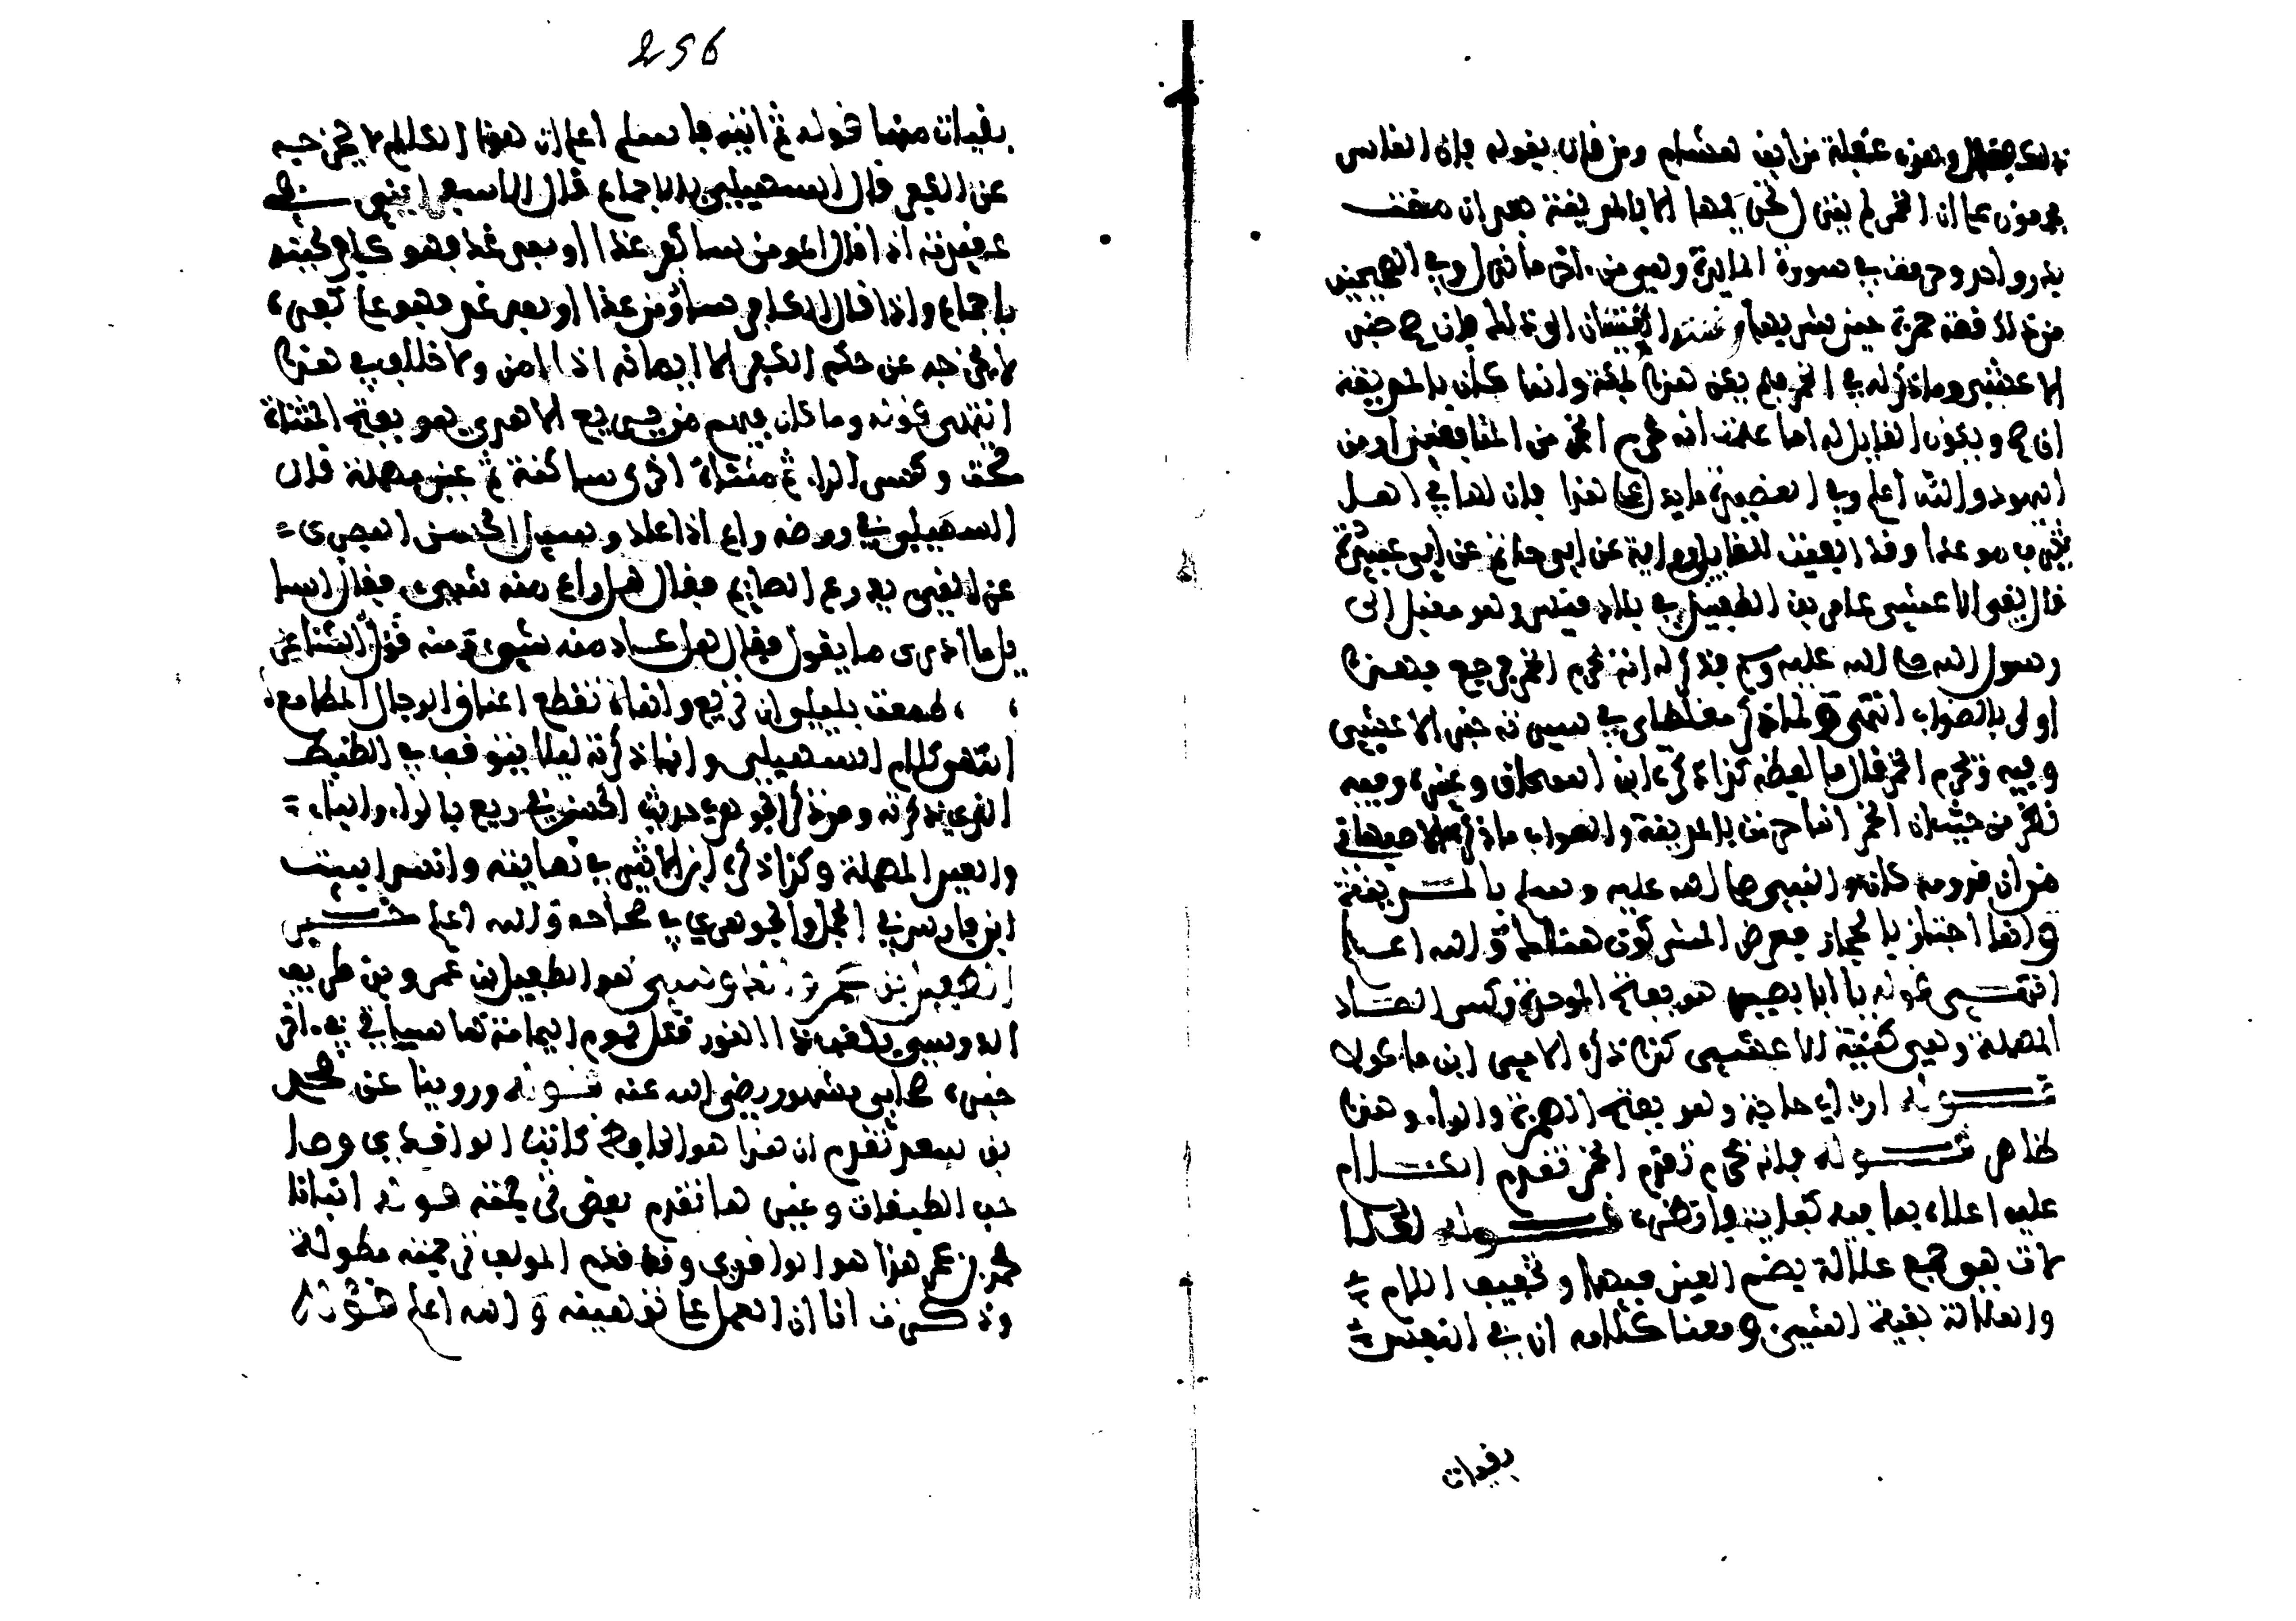 وهذه غفلة من ابن هشام ومن قال بقوله فان الناس
مجمعون على ان الخمر لم ينزل تحريمها الا بالمدينة بعد ان مضت
بدر واحد وحرمت في سورة المائدة وهي من اخر ما نزل وفي الصحيحين
من ذلك قصة حمزة حين شربها وغنته القينتان فان صح خبر
الاعشى وما ذكر له في الخمر فلم يكن هذا بمكة وانما كان بالمدينة
ويكون القايل له اما علمت انه يحرم الخمر من المنافقين او من
اليهود والله اعلم وفي القصيدة ما يدل على هذا فان لها في اهل
يثرب موعدا وقد الفيت للقالي رواية عن ابي حاتم عن ابي عبيدة
قال لقي الاعشى عامر بن الطفيل في بلاد قيس وهو مقبل الى
رسول الله صلى الله عليه وسلم فذكر له انه يحرم الخمر فرجع فهذا
اولى بالصواب انتهى ولما ذكر مغلطاي في سيرته خبر الاعشى
وفيه تحريم الخمر قال ما لفظه كذا ذكره ابن اسحاق وغيره وفيه
نظر من حيث ان الخمر انما حرمت بالمدينة والصواب ما ذكره الاصبهاني
من ان قدومه كان والنبي صلى الله عليه وسلم بالمدينة
وانما اجتاز بالحجاز فعرض المشركون هناك له والله اعلم
انتهى قوله يا ابا بصير هو بفتح الموحدة وكسر الصاد
المهملة وهي كنية الاعشى كذا ذكره الامير ابن ماكولا
قوله ارب اي حاجة وهو بفتح الهمزة والراء وهذا
ظاهر قوله فانه يحرم الخمر تقدم الكلام
عليه اعلاه بما فيه كفاية فانظره قوله لعلا
لات هو جمع علالة بضم العين فيهما وتخفيف اللام
والعلالة بقية الشيء ومعنا كلامه ان في النفس
بقيات
256
بقيات منها قوله ثم اتيه فاسلم اعلم ان هذا الكلام لا يخرجه
عن الكفر قال السهيلي بالاجماع قال الاسفرايني في
عقيدته اذا قال المومن ساكفر غدا او بعد غد فهو كافر لحينه
باجماع واذا قال الكافر ساومن غدا او بعد غد فهو على كفره
لا يخرجه عن حكم الكفر الا ايمانه اذا امن ولا خلاف في هذا
انتهى قوله وما كان فيهم من يريع الا هدي هو بفتح المثناة
تحت وكسر الراء ثم مثناة اخرى ساكنة ثم عين مهملة قال
السهيلي في روضه راع اذا عاد وسيل الحسن البصري
عن القيء يذرع الصايم فقال هل راع منه شيء فقال السايل
ما ادري ما يقول فقال هل عاد منه شيء ومنه قول الشاعر
طمعت بليلى ان تريع وانما تقطع اعناق الرجال المطامع
انتهى كلام السهيلي وانما ذكرته ليلا يتوقف في الضبط
الذي ذكرته وقد ذكر الجوهري حديث الحسن في ريع بالراء والياء
والعين المهملة وكذا ذكره ابن الاثير في نهايته وانشد البيت
ابن فارس في المجمل والجوهري في صحاحه والله اعلم خبر
الطفيل بن عمرو الدوسي هو الطفيل بن عمرو بن طريف
الدوسي يلقب ذا النور قتل يوم اليمامة كما سياتي في اخر
خبره صحابي مشهور رضي الله عنه قوله وروينا عن محمد
بن سعد تقدم ان هذا هو الحافظ كاتب الواقدي وصا
حب الطبقات وغيرها تقدم بعض ترجمته قوله انبانا
محمد بن عمر هذا هو الواقدي وقد قدم المولف ترجمته مطولة
وذكرت انا ان العمل على توهينه والله اعلم قوله